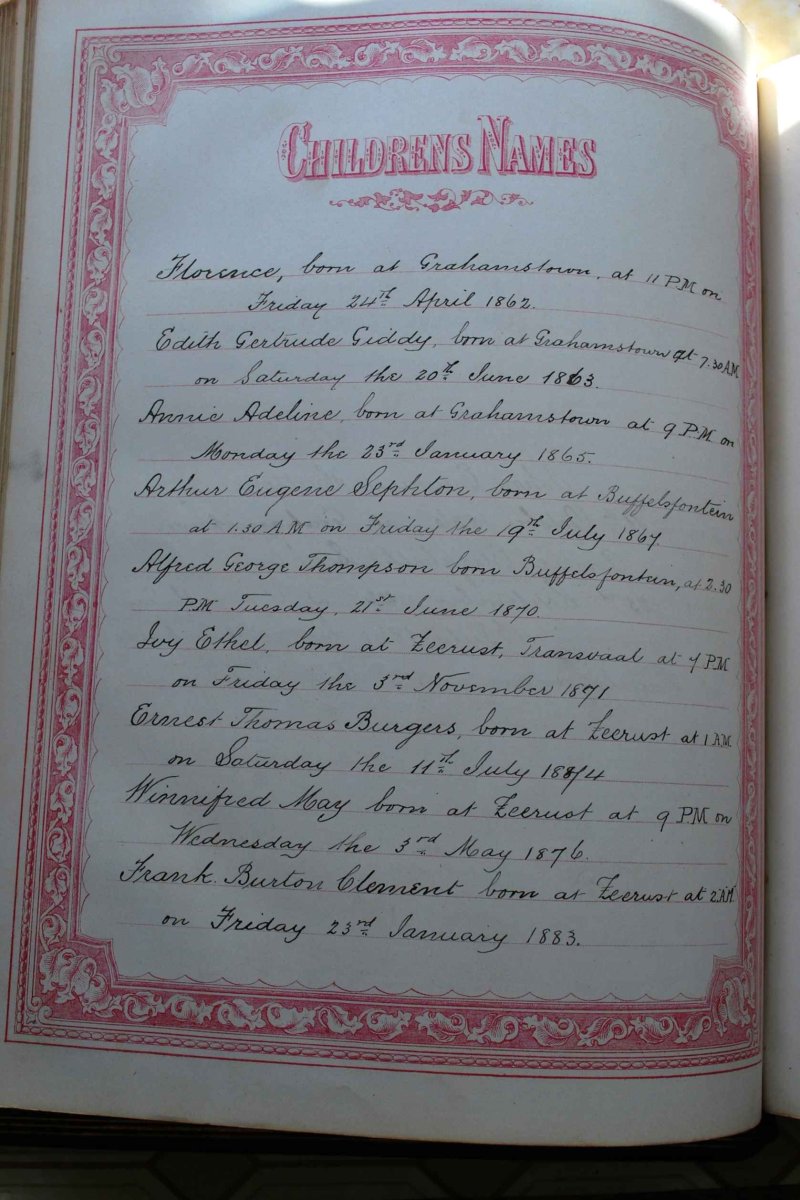 CHILDRENS NAMES
Florence, born at Grahamstown, at 11 P.M on
Friday 24th April 1862.
Edith Gertrude Giddy, born at Grahamstown at 7.30 A.M
on Saturday the 20th June 1863.
Annie Adeline, born at Grahamstown at 9 P.M on
Monday the 23rd January 1865.
Arthur Eugene Sephton, born at Buffelsfontein
at 1.30 A M on Friday the 19th July 1867.
Alfred George Thompson born Buffelsfontein, at 2.30
P.M Tuesday, 21st June 1870.
Ivy Ethel, born at Zeerust, Transvaal at 7 P.M
on Friday the 3rd November 1871
Ernest Thomas Burgers, born at Zeerust at 1 A.M.
on Saturday the 11th July 1874
Winnifred May born at Zeerust at 9 P.M on
Wednesday the 3rd May 1876.
Frank Burton Clement born at Zeerust at 2 A.M
on Friday 23rd January 1883.